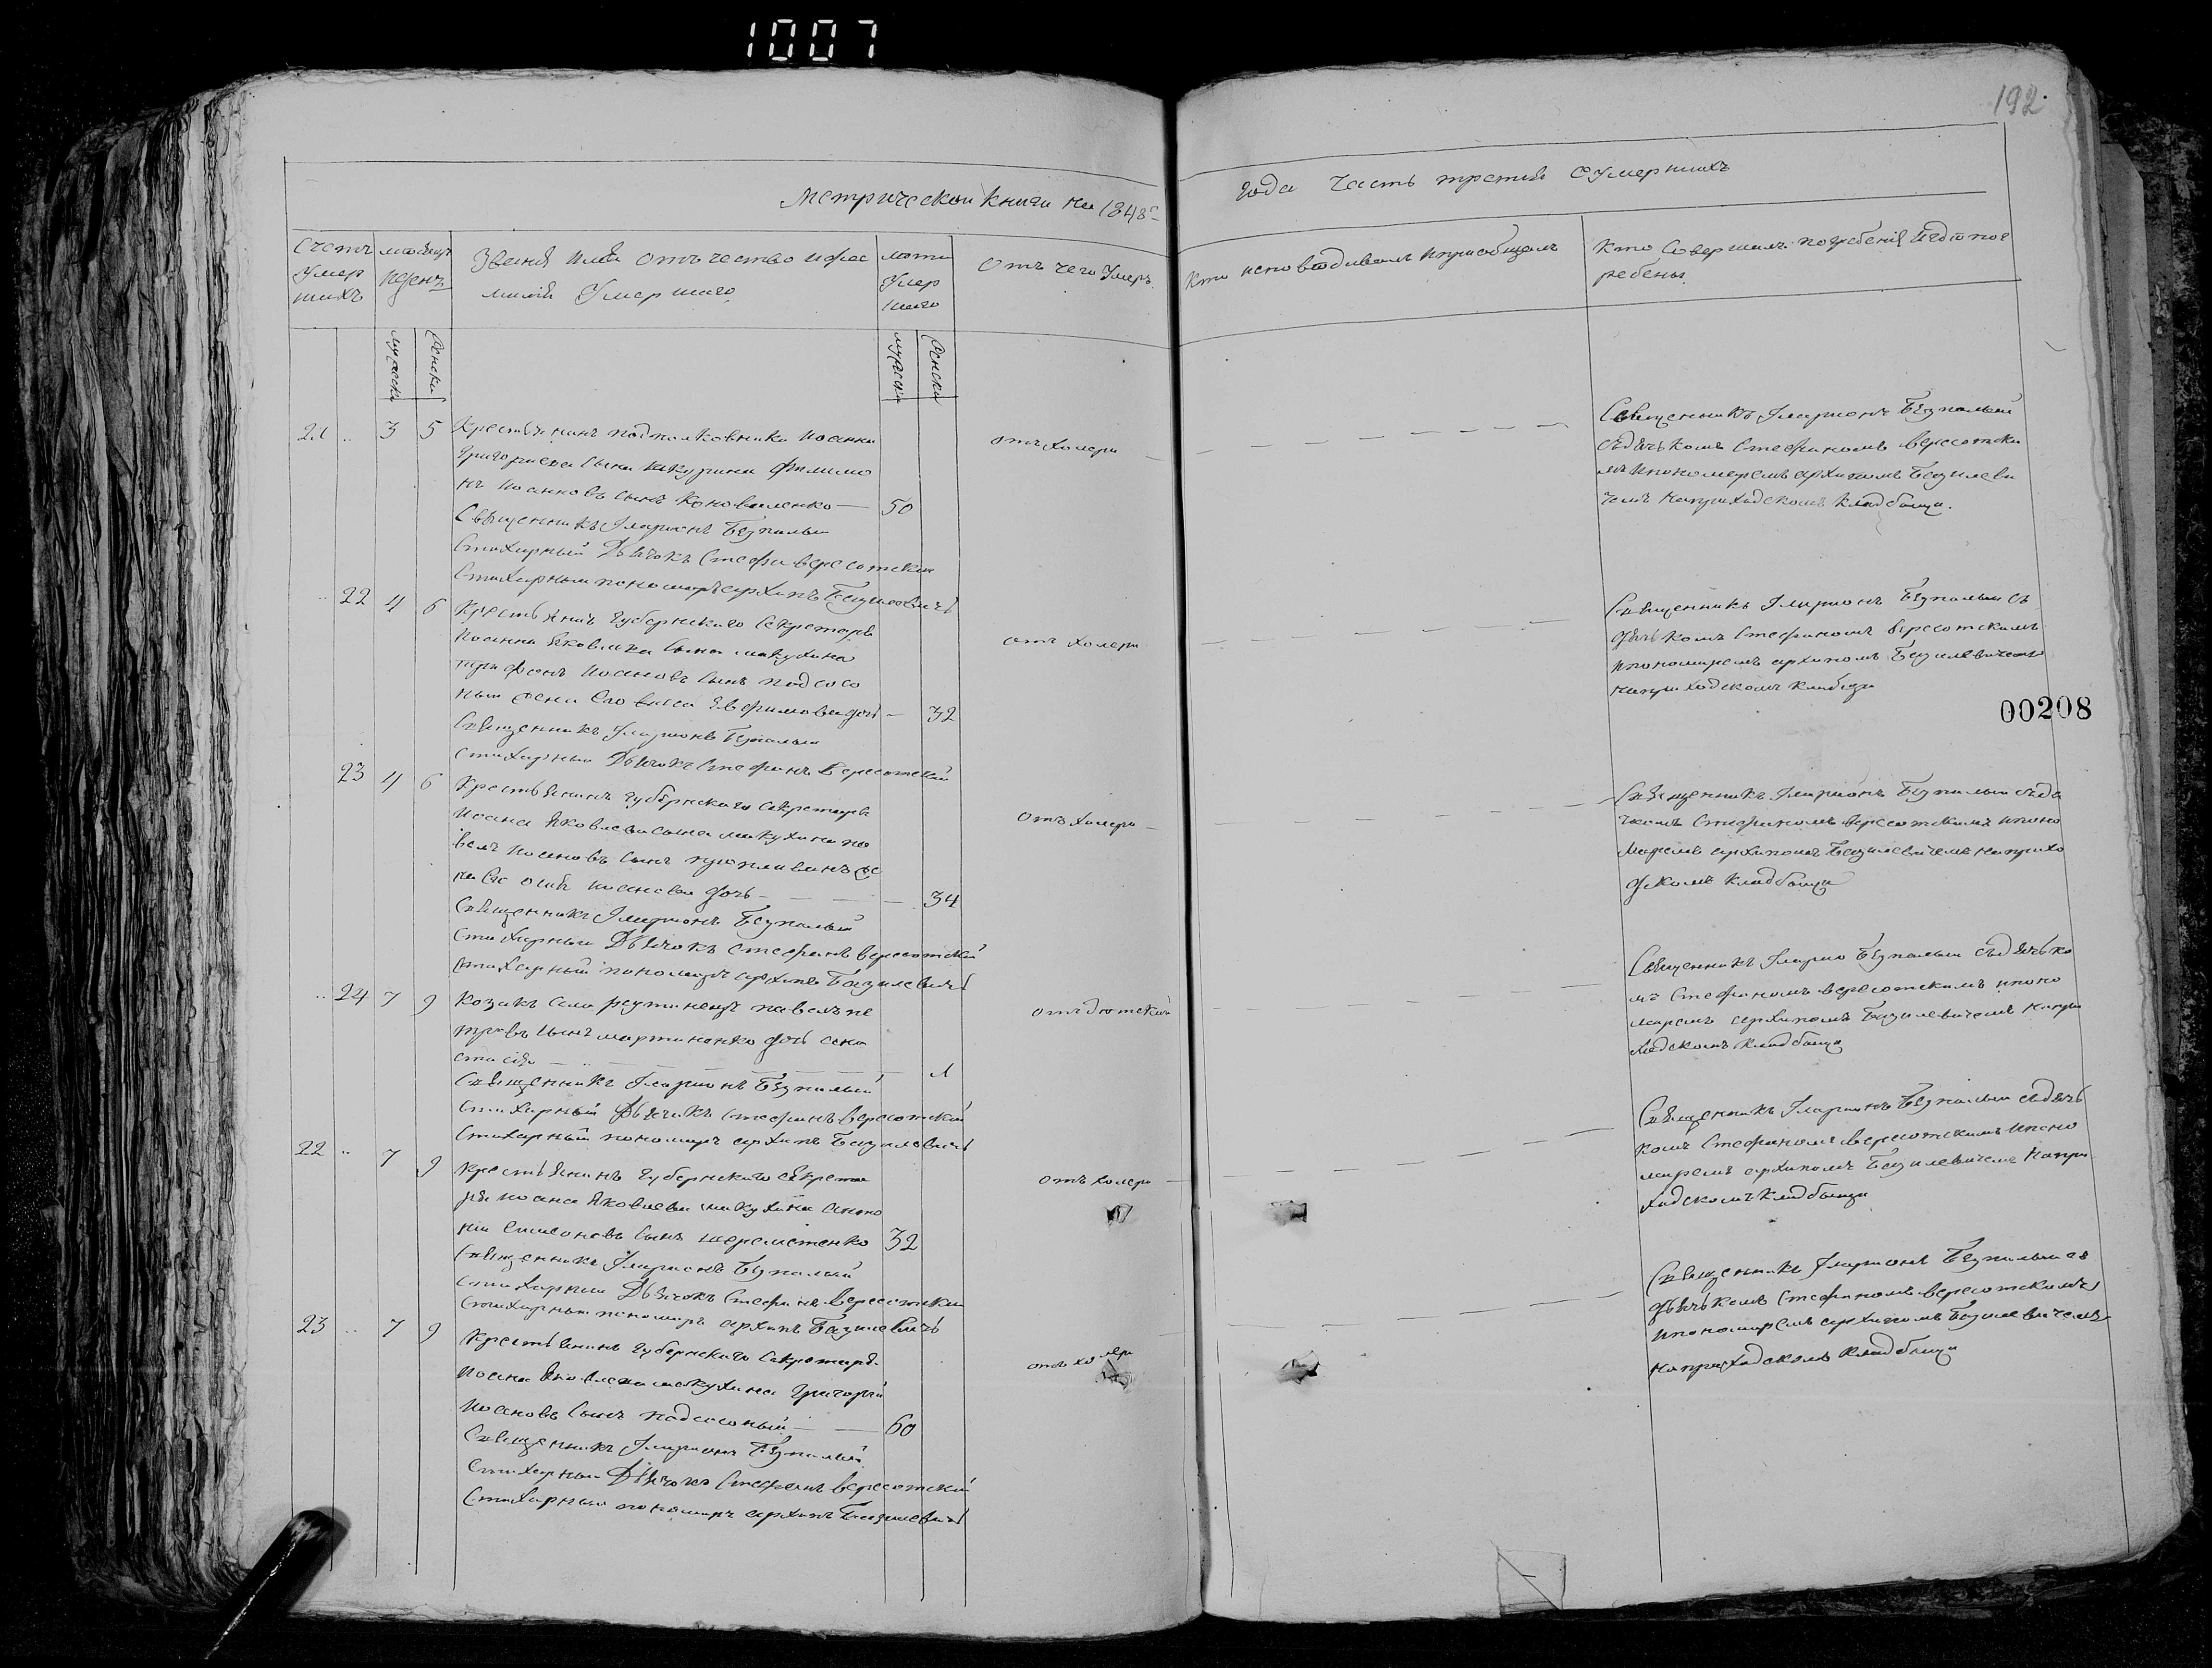 1007
192.
Метрической книги на 1848г
года часть третия о Умершихъ
Счетъ Умер шихъ
месяцъ иденъ
Звения Имя отъчество ифа
милия Умершаго
лота Умер шаго
отъ чего Умеръ.
Кто исповодивалъ иприобщалъ
Кто Совершалъ погребения игдю пог
ребены
мужеска
женска
мужеска
женска
21 .. 3 5 Крестьянинъ подполковника Иоанна
Григориева сына
нъ Иоанновъ сынъ Коноваленко — 50
отъ холери
Священникъ Иларионъ Безпалый
Стихарный Дьячокъ Стефа вересотский
Стихарный пономаръ архипъ Базилевичъ
Священникъ Иларионъ Безпалый
съдячькомъ Стефаномъ вересотски
мъ ипономаремъ архипомъ Базилеви
чемъ наприходскомъ кладбыще.
.. 22 4 6 Крестьянинъ Губернского Секретаря
Иоанна Яковлева сына макухина
трифонъ Иоановъ сынъ подсосо
ный жена Его Евфимова дочь — 32
отъ холери
Священникъ Иларионъ Безпалый
Стихарный Дьячокъ Стефанъ Вересотский
Священникъ Иларионъ Безпалый съ
дячькомъ Стефаномъ вересотскимъ
ипономаремъ архипомъ Базилевичемъ
наприходскомъ
00208
23 4 6 Крестьянинъ Губернского Секретаря
Иоана Яковлева сына макухина па
велъ Иоановъ сынъ
на Его Иоанова дочь — 34
отъ холери
Священникъ Иларионъ Безпалый
Стихарный Дьячокъ Стефанъ вересотский
Стихарный пономаръ архипъ Базилевичъ
Священникъ Иларионъ Безпалый съдя
чкомъ Стефаномъ вересотскимъ ипоно
маремъ архипомъ Базилевичемъ наприхо
дскомъ кладбыще
.. 24 7 9 Козакъ села реутинецъ павелъ пе
тровъ сынъ мартиненко дочь ана
стасия — 1
отъ дютской
Священникъ Иларионъ Безпалый
Стихарный Дьячокъ Стефанъ вересотский
Стихарный пономаръ архипъ Базилевичъ
Священникъ Иларио Безпалый съдячько
мъ Стефаномъ вересотскимъ ипоно
маремъ архипомъ Базилевичемъ напри
ходскомъ кладбыще
22 .. 7 9 Крестьянинъ Губернского секрета
ря иоана Яковлева макухина анто
ний Симоновъ сынъ шереметенко 32
отъ холери
Священникъ Иларионъ Безпалый
Стихарный Дьячокъ Стефанъ вересотский
Стихарный пономаръ архипъ Базилевичъ
Священникъ Иларионъ Безпалый съдячь
комъ Стефаномъ вересотскимъ ипоно
маремъ архипомъ Базилевичемъ напри
ходскомъ кладбыще
23 .. 7 9 Крестьянинъ Губернского Секретаря
Иоана Яковлева макухина Григорий
Иоановъ сынъ подсосоный — 60
отъ холери
Священникъ Иларионъ Безпалый
Стихарный Дьячокъ Стефанъ вересотский
Стихарный пономаръ архипъ Базилевичъ
Священникъ Иларионъ Безпалый съ
дьячькомъ Стефаномъ вересотскимъ
ипономаремъ архипомъ Базилевичемъ
наприходскомъ кладбыще